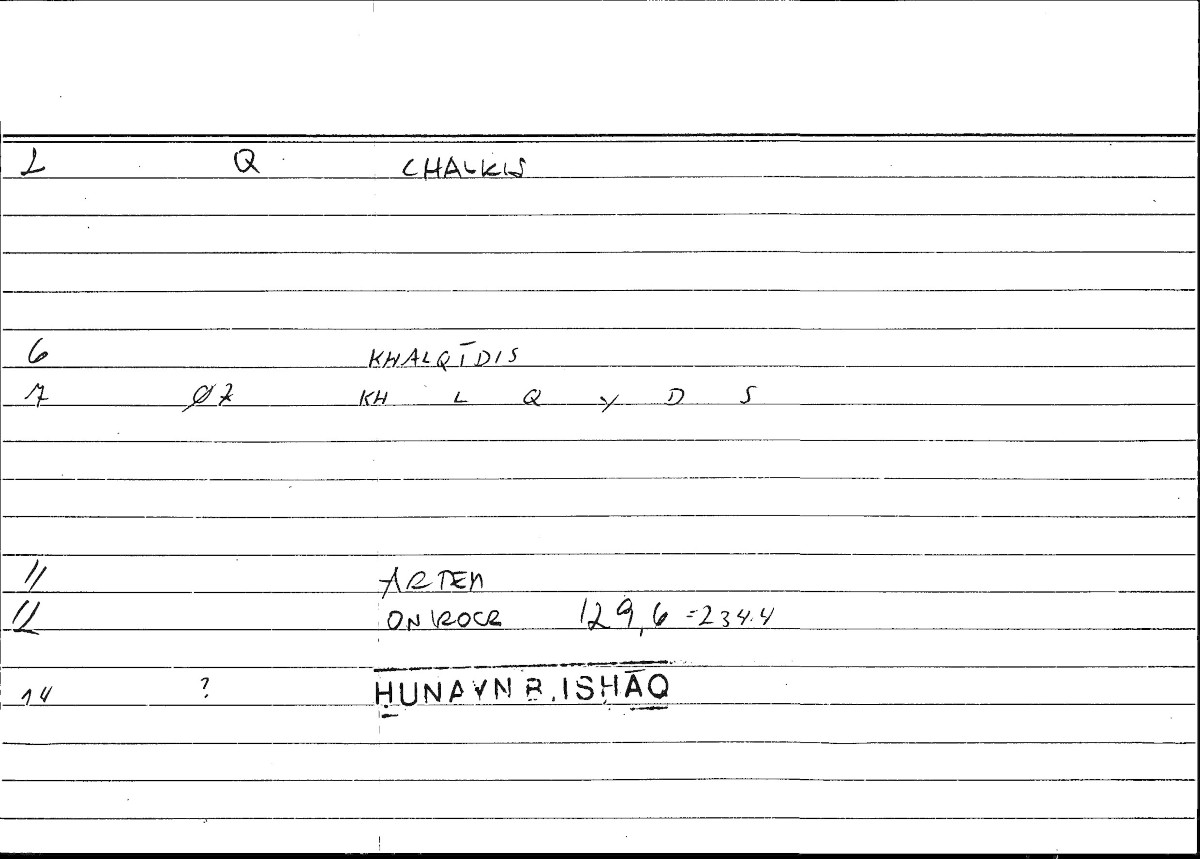 2 Q CHALKIS
6 KHALQĪDIS
7 Ø7 KH L Q Y D S
11 ARTEM
12 ONIROCR 129,6 =234.4
14 ? ḤUNAYN B. ISḤĀQ